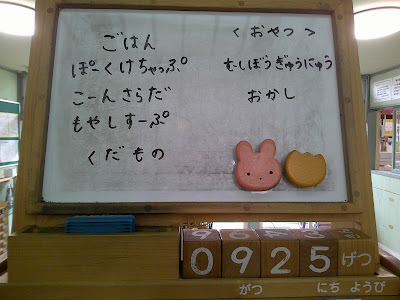 ごはん
ぽーくけちゃっぷ
こーんさらだ
もやしすーぷ
くだもの
<おやつ>
むしぼうぎゅうにゅう
おかし
0925げつ
がつ にち ようび